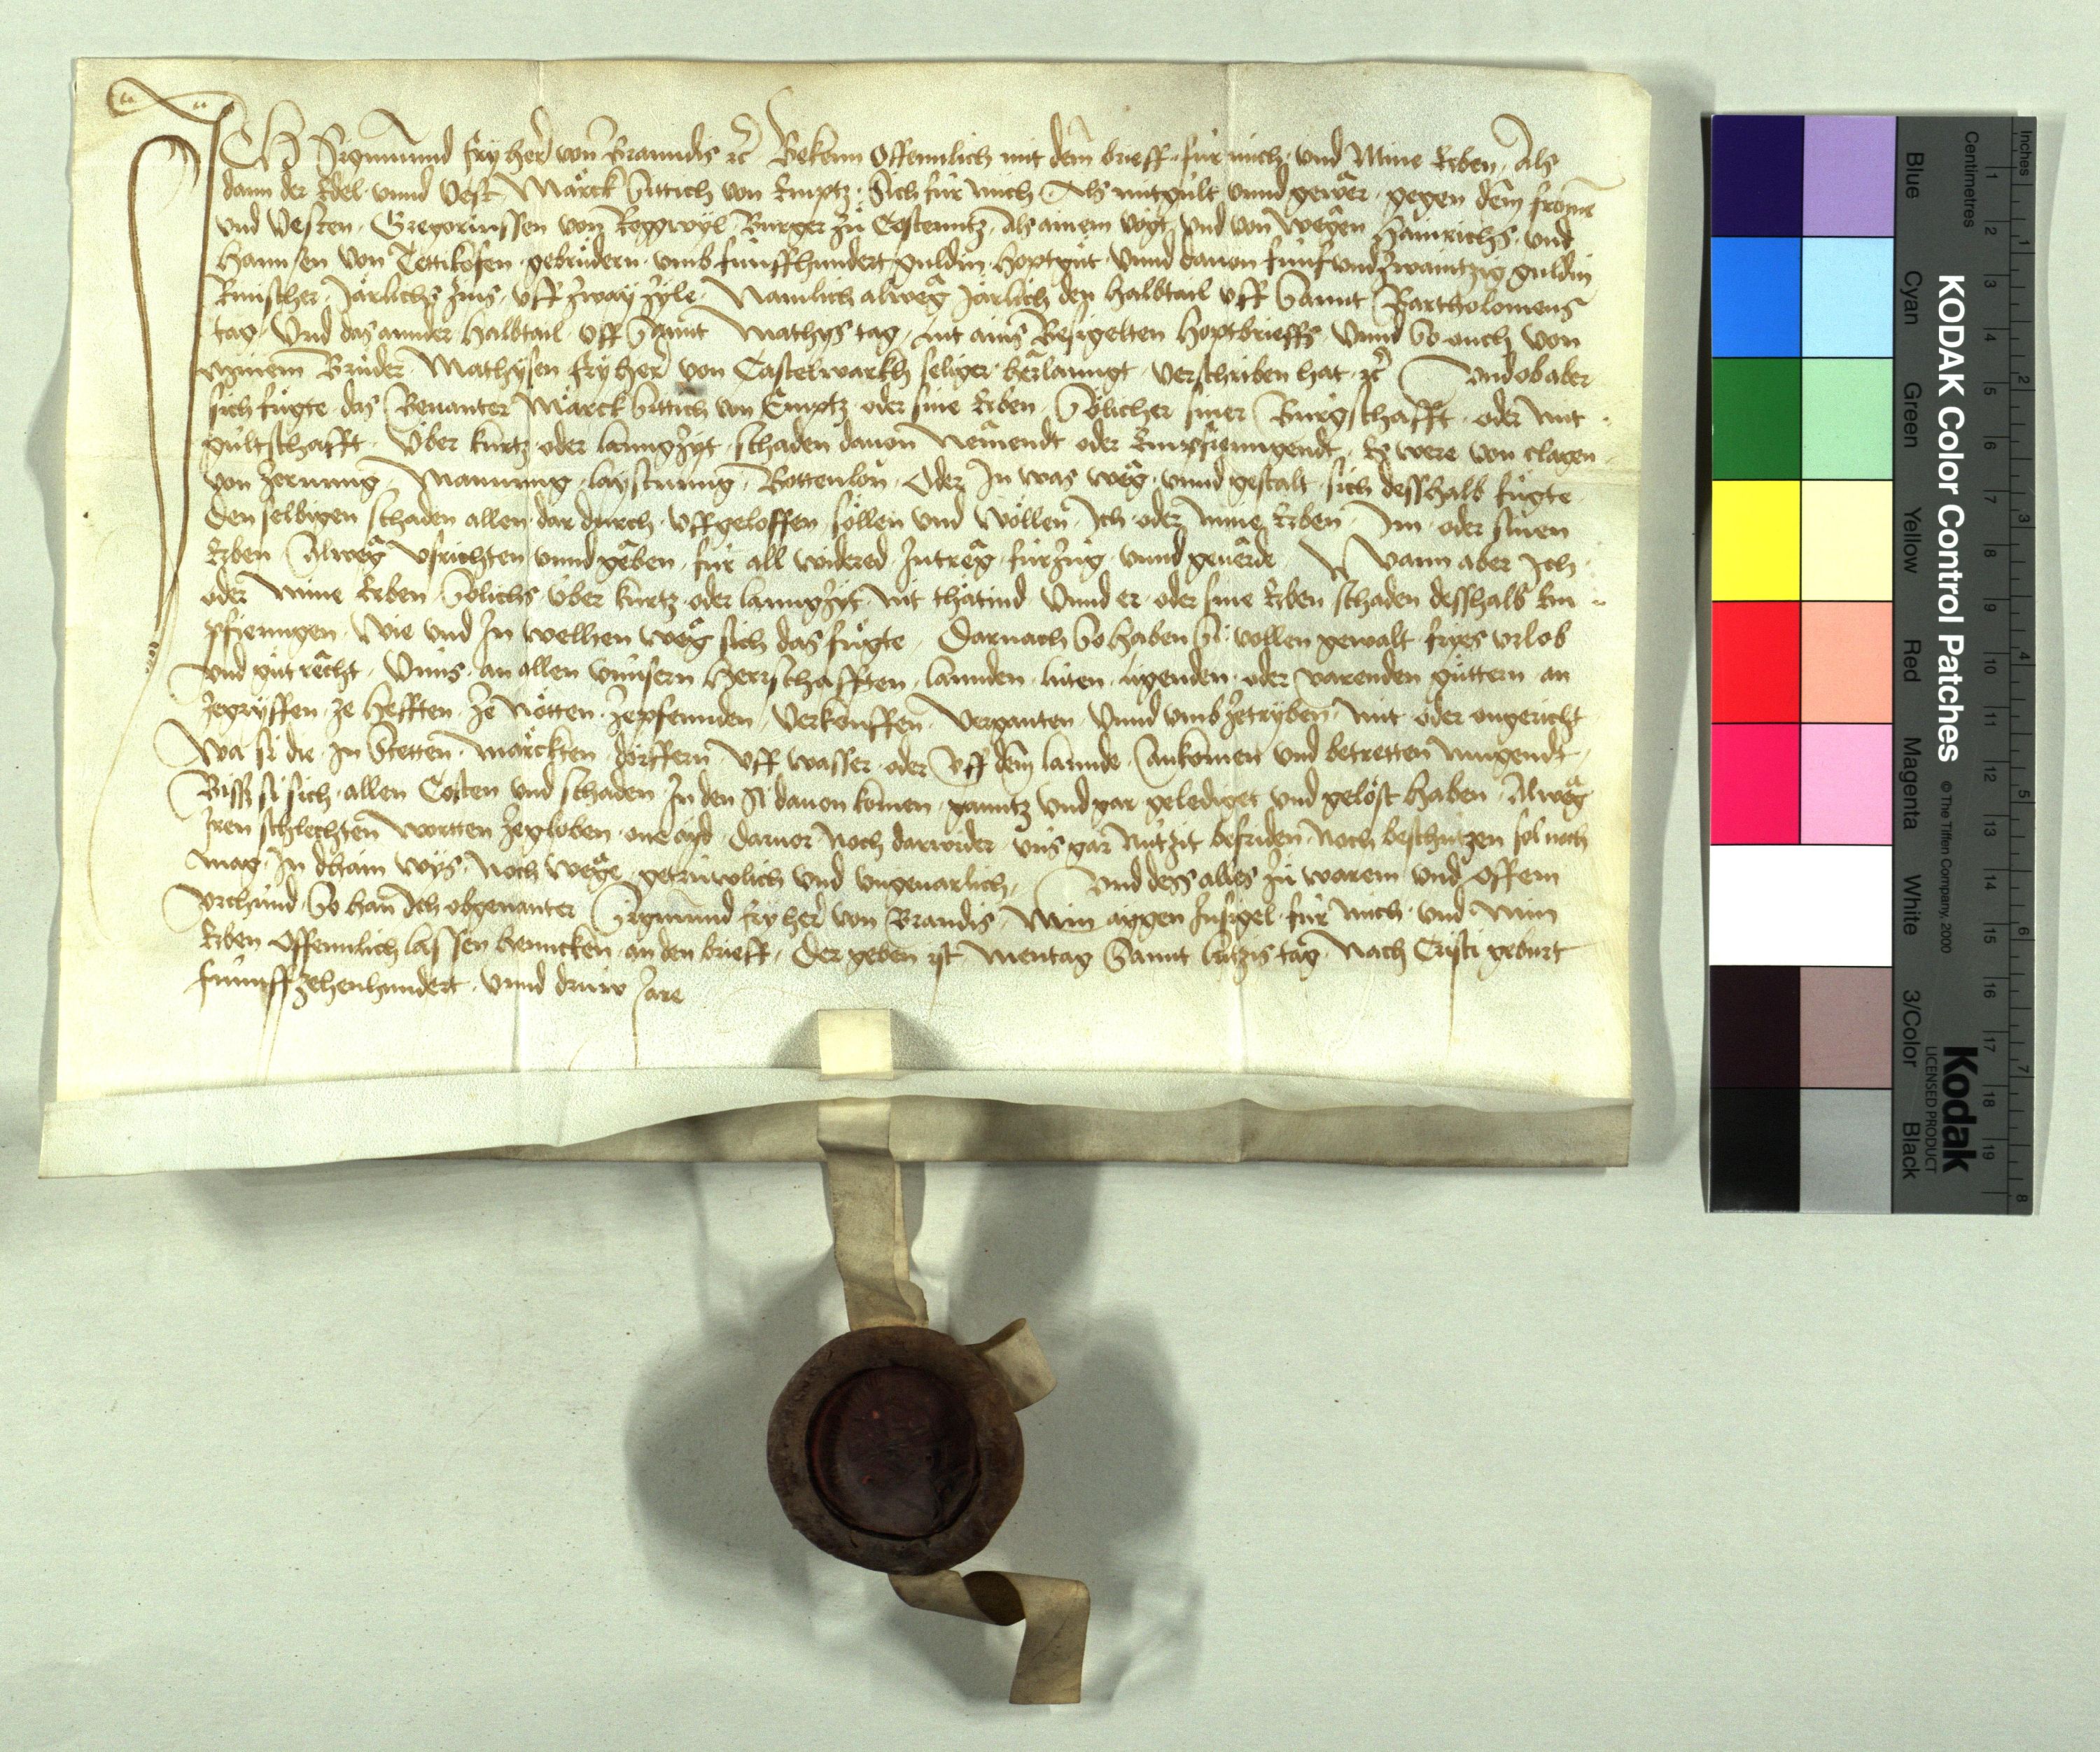 ICH Sigmund fry her von Branndis rc Bekenn offennlich mit dem brieff fúr mich und Mine Erben, Als
dann der Edel unnd Vest Märck Sittich von Emptz sich fúr mich Als mitgúlt unnd gewer gegen dem fromen
und Vesten Gregoriussen von Roggwyl Burger zů Costenntz, Als ainem vogt und von wegen Hainrichs und
Hannsen von Tettikofen gebrůdern umb fúnffhundert guldin hoptgůt unnd dauon fúnf und zwaintzig guldin
Rinischer Järlichs zins uff zway zyle Namlich alweg Järlich den halbtail uff Sannt Bartholomeus
tag Und das annder halbtail uff Sannt Mathys tag, Lut ains Besigelten hoptbrieffs Unnd So ouch von
minem Brůder Mathysen fry her von Castelwarkh seliger herlanngt verschriben hat rc Und ob aber
sich fůgte das Benanter Märck Sittich von Emptz oder sine Erben Sölicher siner Burgschafft oder mit
gúltschafft Über kurtz oder lanng zyt schaden dauon Nemendt oder Empfienngendt, Es were von clagen
von zerunng Manunng laystunng Bottenlon Oder In was weg unnd gestalt sich desshalb fůgte
Den selbigen schaden allen dar durch uffgeloffen söllen und wöllen Ich oder mine Erben Im oder sinen
Erben Alweg ufrichten unnd geben fúr all widered Intreg fúrzug unnd geuerde Wann aber Ich
oder Mine Erben Sölichs Über kurtz oder lanng zyt nit thätind Unnd er oder sine Erben schaden desshalb Em
pfienngen Wie und In welhen weg sich das fůgte Darnach So haben Si vollen gewalt fryes urlob
und gůt recht Unns an allen unnsern Herrschafften lannden lúten ligenden oder varenden gůttern an
zegryffen ze hefften ze Nötten zepfennden Verkouffen Verganten Unnd umbzetryben mit oder ongericht
Wa si die In Stetten märckten dörffern Uff wasser oder Uff dem lannde Ankomen und betretten mugendt
Biss si sich allen Costen und schaden In den si dauon komen ganntz und gar gelediget und gelöst haben Alweg
Iren schlechten wortten zegloben one ayd daruor Noch darwider uns gar nútzit befriden Noch beschútzen sol noch
mag In dhain wys Noch wege getrúwlich und ungeuarlich Und dess alles zů warem und offem
Urchund So han Ich obgenanter Sigmund fry her von Brandis Min aygen Insigel fúr mich und Min
Erben Offennlich lassen hencken an den brieff Der geben ist Mentag Sannt lutzis tag Nach Cristi geburt
fúnnffzehenhundert unnd drúw Jare
KODAK Color Control Patches © The Tiffen Company, 2000
Kodak
LICENSED PRODUCT
Blue Cyan Green Yellow Red Magenta White 3/Color Black
Centimetres 1 2 3 4 5 6 7 8 9 10 11 12 13 14 15 16 17 18 19
Inches 1 2 3 4 5 6 7 8